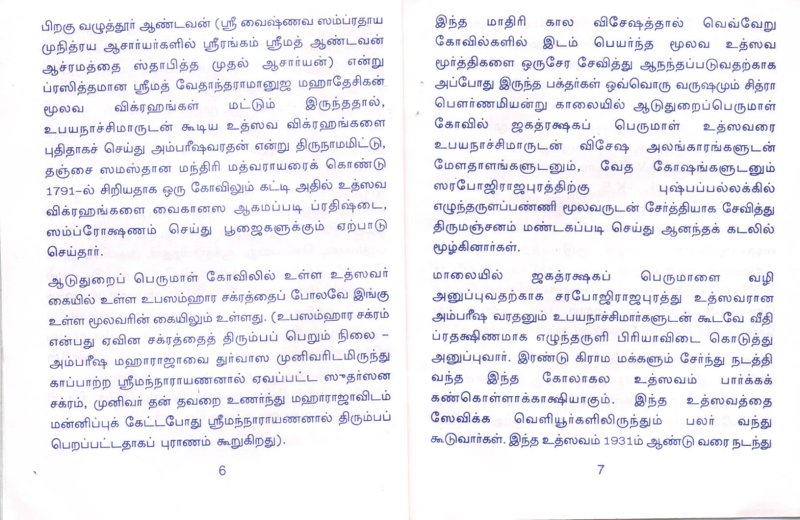 பிறகு வழுத்தூர் ஆண்டவன் (ஸ்ரீ வைஷ்ணவ ஸம்ப்ரதாய
முநித்ரய ஆசார்யர்களில் ஸ்ரீரங்கம் ஸ்ரீமத் ஆண்டவன்
ஆச்ரமத்தை ஸ்தாபித்த முதல் ஆசார்யன்) என்று
ப்ரஸித்தமான ஸ்ரீமத் வேதாந்தராமானுஜ மஹாதேசிகன்
மூலவ விக்ரஹங்கள் மட்டும் இருந்ததால்,
உபயநாச்சிமாருடன் கூடிய உத்ஸவ விக்ரஹங்களை
புதிதாகச் செய்து அம்பரீஷவரதன் என்று திருநாமமிட்டு,
தஞ்சை ஸமஸ்தான மந்திரி மத்வராயரைக் கொண்டு
1791-ல் சிறியதாக ஒரு கோவிலும் கட்டி அதில் உத்ஸவ
விக்ரஹங்களை வைகானஸ ஆகமப்படி ப்ரதிஷ்டை,
ஸம்ப்ரோக்ஷணம் செய்து பூஜைகளுக்கும் ஏற்பாடு
செய்தார்.
ஆடுதுறைப் பெருமாள் கோவிலில் உள்ள உத்ஸவர்
கையில் உள்ள உபஸம்ஹார சக்ரத்தைப் போலவே இங்கு
உள்ள மூலவரின் கையிலும் உள்ளது. (உபஸம்ஹார சக்ரம்
என்பது ஏவின சக்ரத்தைத் திரும்பப் பெறும் நிலை –
அம்பரீஷ மஹாராஜாவை துர்வாஸ முனிவரிடமிருந்து
காப்பாற்ற ஸ்ரீமந்நாராயணனால் ஏவப்பட்ட ஸுதர்ஸன
சக்ரம், முனிவர் தன் தவறை உணர்ந்து மஹாராஜாவிடம்
மன்னிப்புக் கேட்டபோது ஸ்ரீமந்நாராயணனால் திரும்பப்
பெறப்பட்டதாகப் புராணம் கூறுகிறது).
6
இந்த மாதிரி கால விசேஷத்தால் வெவ்வேறு
கோவில்களில் இடம் பெயர்ந்த மூலவ உத்ஸவ
மூர்த்திகளை ஒருசேர சேவித்து ஆனந்தப்படுவதற்காக
அப்போது இருந்த பக்தர்கள் ஒவ்வொரு வருஷமும் சித்ரா
பௌர்ணமியன்று காலையில் ஆடுதுறைப்பெருமாள்
கோவில் ஜகத்ரக்ஷகப் பெருமாள் உத்ஸவரை
உபயநாச்சிமாருடன் விசேஷ அலங்காரங்களுடன்
மேளதாளங்களுடனும், வேத கோஷங்களுடனும்
ஸரபோஜிராஜபுரத்திற்கு புஷ்பப்பல்லக்கில்
எழுந்தருளப்பண்ணி மூலவருடன் சேர்த்தியாக சேவித்து
திருமஞ்சனம் மண்டகப்படி செய்து ஆனந்தக் கடலில்
மூழ்கினார்கள்.
மாலையில் ஜகத்ரக்ஷகப் பெருமாளை வழி
அனுப்புவதற்காக சரபோஜிராஜபுரத்து உத்ஸவரான
அம்பரீஷ வரதனும் உபயநாச்சிமார்களுடன் கூடவே வீதி
ப்ரதக்ஷிணமாக எழுந்தருளி பிரியாவிடை கொடுத்து
அனுப்புவார். இரண்டு கிராம மக்களும் சேர்ந்து நடத்தி
வந்த இந்த கோலாகல உத்ஸவம் பார்க்கக்
கண்கொள்ளாக்காக்ஷியாகும். இந்த உத்ஸவத்தை
ஸேவிக்க வெளியூர்களிலிருந்தும் பலர் வந்து
கூடுவார்கள். இந்த உத்ஸவம் 1931ம் ஆண்டு வரை நடந்து
7